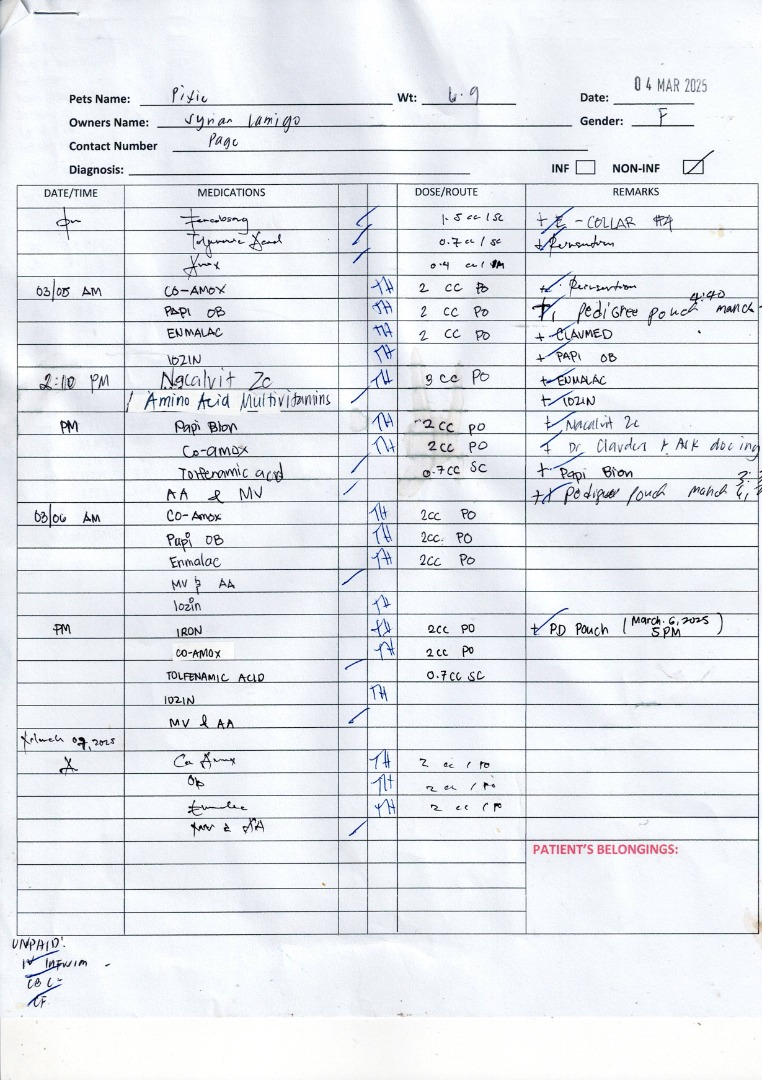 04 MAR 2025
Pets Name: Pixie Wt: 6.9 Date:
Owners Name: Syrian Lamigo Gender: F
Contact Number Page
Diagnosis: INF NON-INF
DATE/TIME MEDICATIONS DOSE/ROUTE REMARKS
1.5 cc / SC + E-COLLAR #4
0.7 cc / SC +
0.4 cc / IM
03/05 AM CO-AMOX TH 2 CC PO +
4:40
PAPI OB TH 2 CC PO Pedigree pouch march
ENMALAC TH 2 CC PO + CLAVMED
IOZIN TH + PAPI OB
2:10 PM Nacalvit Zc TH 3 cc PO + ENMALAC
Amino Acid Multivitamins + IOZIN
PM Papi Bion TH 2cc PO + Nacalvit Zc
Co-amox TH 2cc PO + Dr.
Tolfenamic acid 0.7cc SC + Papi Bion
AA & MV Pedigree Pouch march
03/06 AM CO-Amox TH 2cc PO
Papi OB TH 2cc. PO
Enmalac TH 2cc PO
MV & AA
Iozin TH
PM IRON TH 2cc PO + PD Pouch (March. 6, 2025 5PM)
CO-AMOX TH 2cc PO
TOLFENAMIC ACID 0.7cc SC
IOZIN TH
MV & AA
March 07, 2025
Co Amox TH 2 cc / PO
OB TH 2 cc / PO
Enmalac TH 2 cc / PO
PATIENT'S BELONGINGS:
UNPAID:
CBC